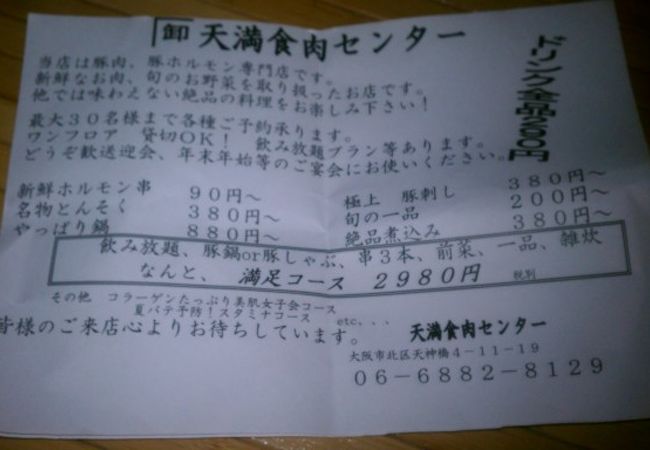 卸 天満食肉センター
ドリンク全品290円
当店は豚肉、豚ホルモン専門店です。
新鮮なお肉、旬のお野菜を取り扱ったお店です。
他では味わえない絶品の料理をお楽しみ下さい！
最大３０名様まで各種ご予約承ります。
ワンフロア　貸切OK！　飲み放題プラン等あります。
どうぞ歓送迎会、年末年始等のご宴会にお使いください。
新鮮ホルモン串　９０円～
名物とんそく　３８０円～
やっぱり鍋　８８０円～
極上　豚刺し　３８０円～
旬の一品　２００円～
絶品煮込み　３８０円～
飲み放題、豚鍋or豚しゃぶ、串３本、前菜、一品、雑炊
なんと、　満足コース　２９８０円　税別
その他　コラーゲンたっぷり美肌女子会コース
夏バテ予防！スタミナコース　etc、、、
皆様のご来店心よりお待ちしています。
天満食肉センター
大阪市北区天神橋４－１１－１９
０６－６８８２－８１２９